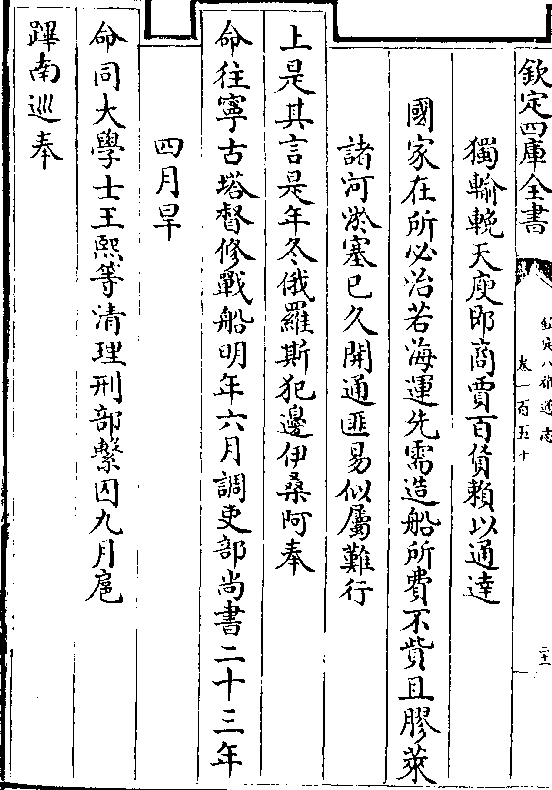 欽定四庫全書
欽定八旗通志
卷一百五十
二十一
獨輸輓天庾即商賈百貨賴以通達
國家在所必治若海運先需造船所費不貲且膠萊
諸河淤塞已久開通匪易似屬難行
上是其言是年冬俄羅斯犯邊伊桑阿奉
命往寧古塔督修戰船明年六月調吏部尚書二十三年
四月旱
命同大學士王熙等清理刑部繫囚九月扈
蹕南巡奉